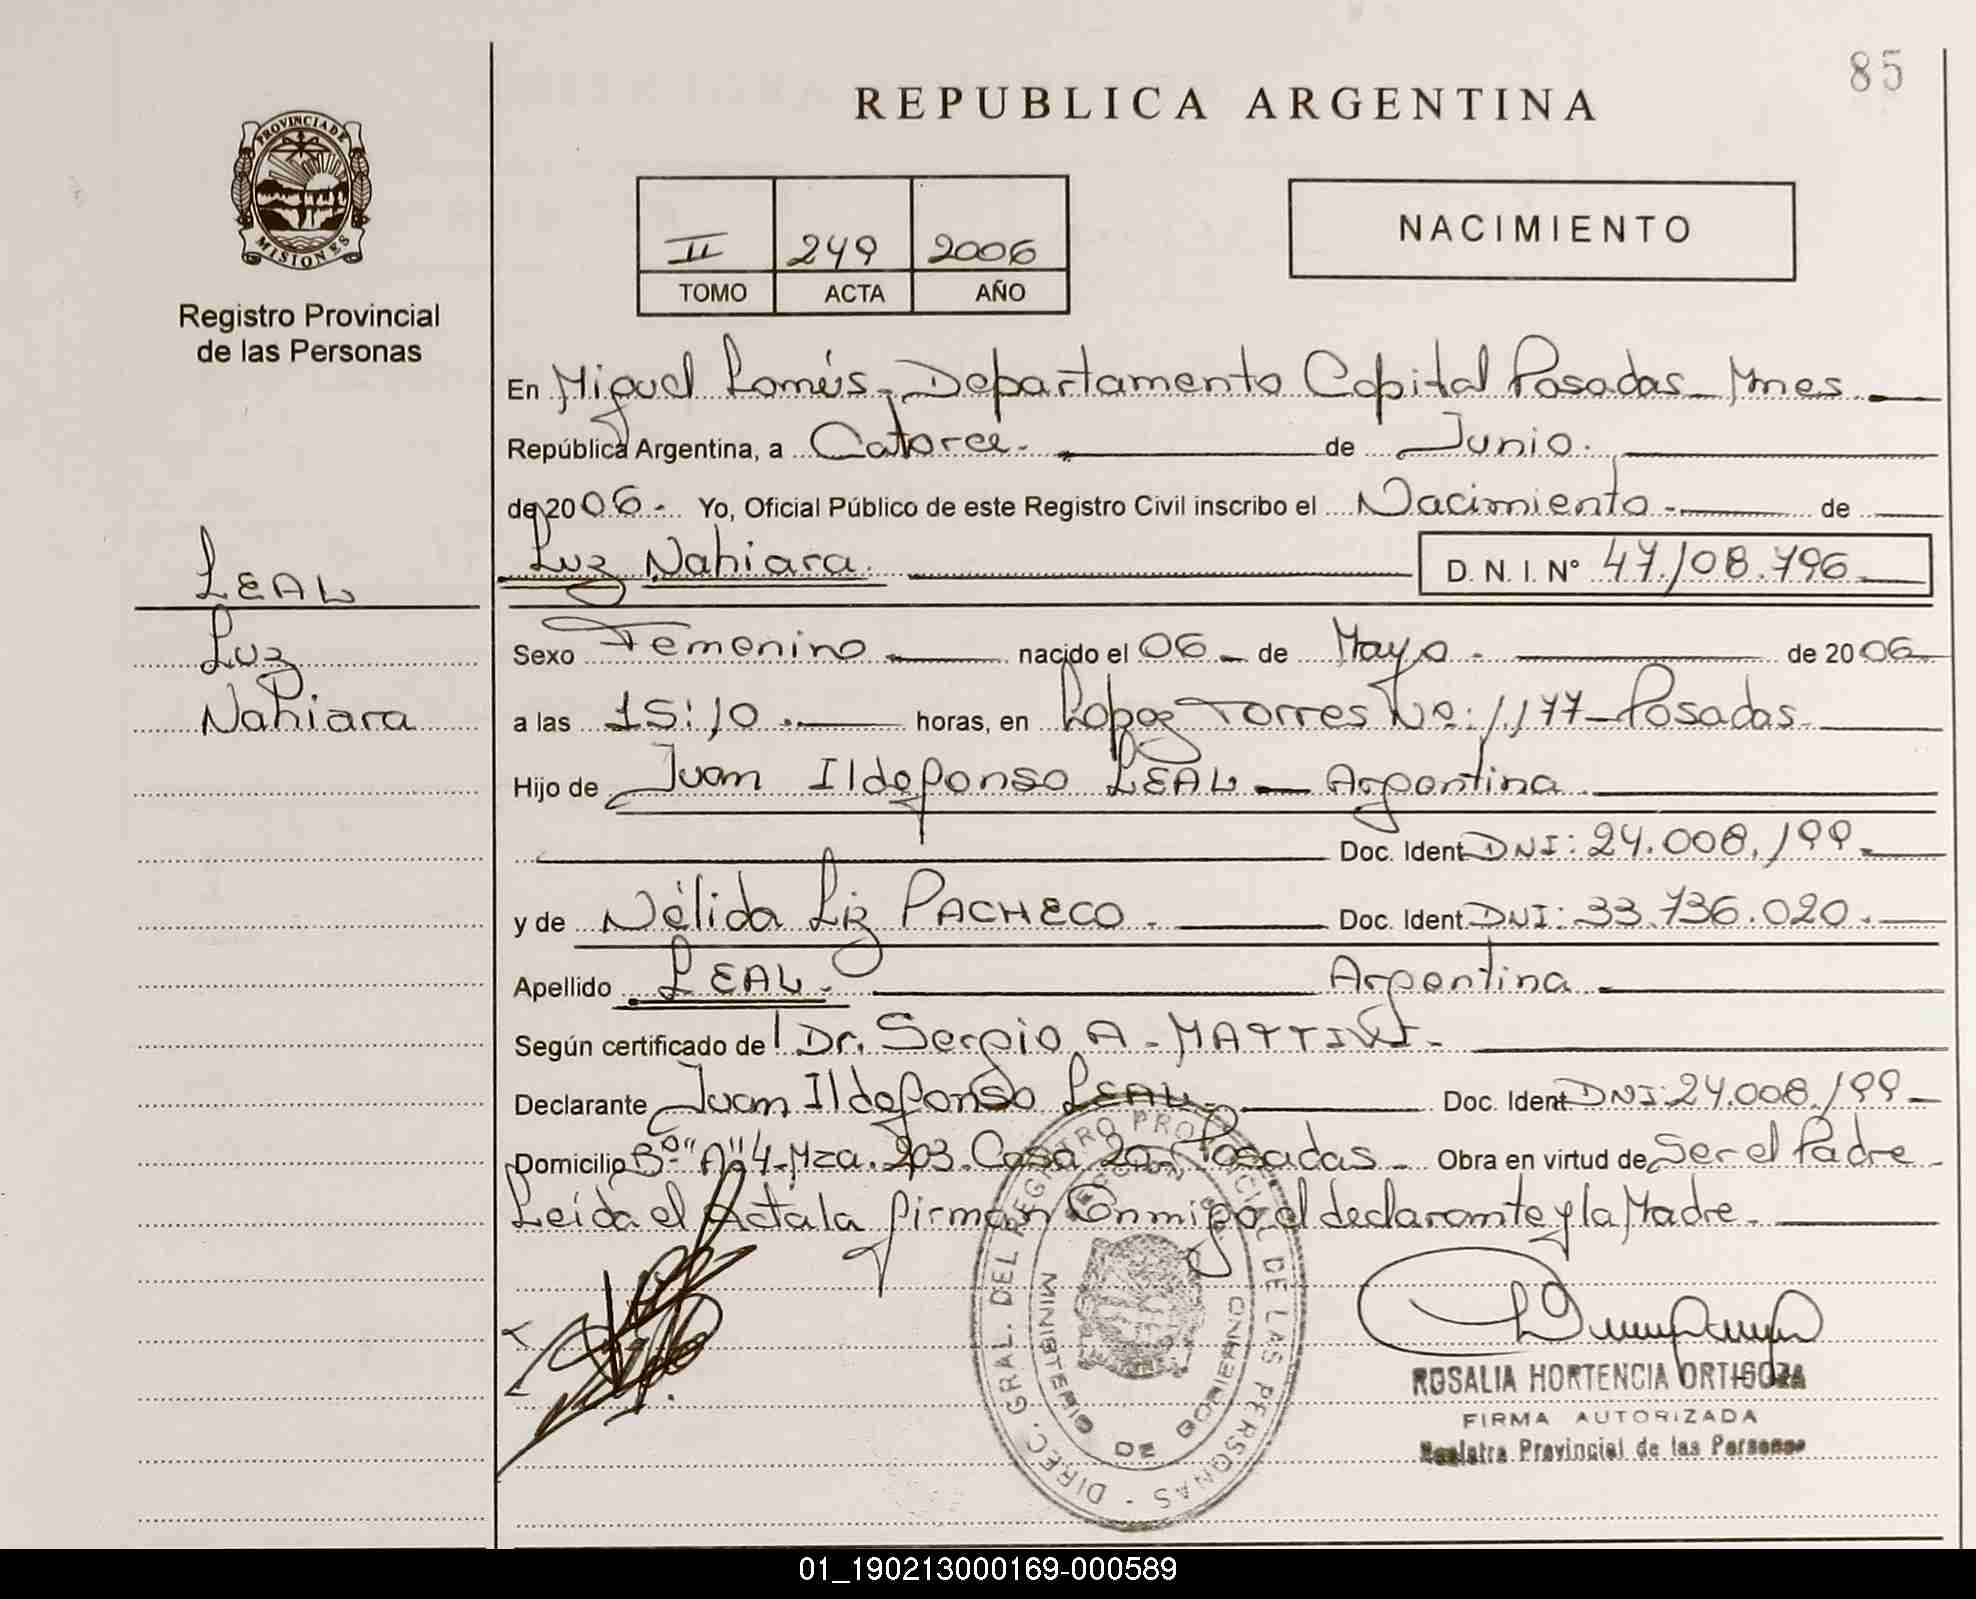 85
REPUBLICA ARGENTINA
PROVINCIA DE
MISIONES
Registro Provincial
de las Personas
II 249 2006
TOMO ACTA AÑO
NACIMIENTO
En Miguel Lanús, Departamento Capital Posadas - Mnes
República Argentina, a Catorce de Junio
de 2006 - Yo, Oficial Público de este Registro Civil inscribo el Nacimiento - de
Luz Nahiara D. N. I. N° 47.108.796
LEAL
Luz
Nahiara
Sexo Femenino nacido el 06 de Mayo de 2006
a las 15:10 horas, en López Torres No: 1.177 - Posadas
Hijo de Juan Ildefonso LEAL - Argentina
Doc. Ident. DNI: 24.008.199
y de Nélida Liz PACHECO Doc. Ident. DNI: 33.736.020
Apellido LEAL. Argentina
Según certificado de Dr. Sergio A - MATTIVI
Declarante Juan Ildefonso LEAL Doc. Ident DNI: 24.008.199
Domicilio Bº "A" 4 - Mza. 203. Casa 20 - Posadas Obra en virtud de Ser el Padre
Leída el Acta la firman Conmigo el declarante y la Madre
DIREC. GRAL. DEL REGISTRO PROVINCIAL DE LAS PERSONAS
MINISTERIO DE GOBIERNO
ROSALIA HORTENCIA ORTIGOZA
FIRMA AUTORIZADA
Registro Provincial de las Personas
01_190213000169-000589